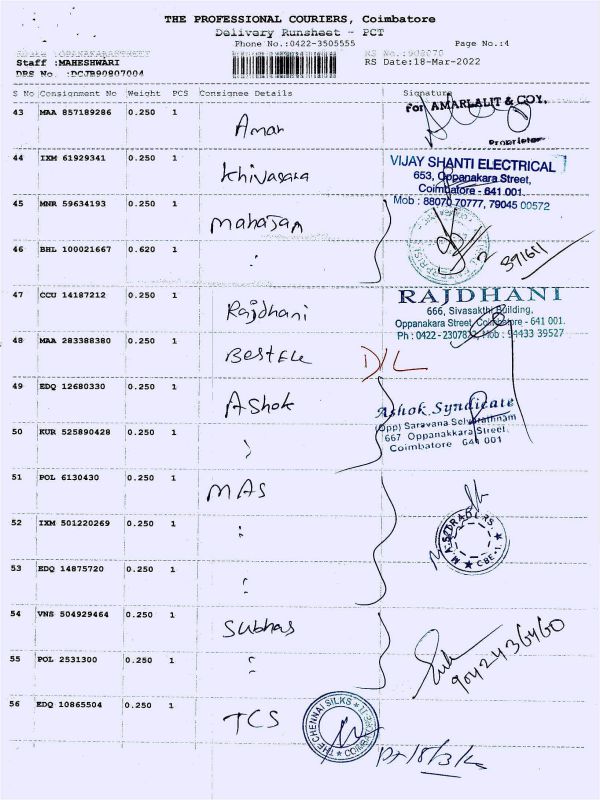 THE PROFESSIONAL COURIERS, Coimbatore
Delivery Runsheet - PCT
Phone No.:0422-3505555
Page No.:4
Route :OPPANAKARASTREET
RS No.:908070
Staff :MAHESHWARI
RS Date:18-Mar-2022
DRS No. :DCJB90807004
S No Consignment No Weight PCS Consignee Details Signature
43 MAA 857189286 0.250 1 Amar
For AMARLALIT & COY,
Proprietor
44 IXM 61929341 0.250 1 Khivasara
VIJAY SHANTI ELECTRICAL
653, Oppanakara Street,
Coimbatore - 641 001.
Mob : 88070 70777, 79045 00572
45 MNR 59634193 0.250 1 Mahajan
46 BHL 100021667 0.620 1 "
391611
47 CCU 14187212 0.250 1 Rajdhani
RAJDHANI
666, Sivasakthi Building,
Oppanakara Street, Coimbatore - 641 001.
Mob : 94433 39527
48 MAA 283388380 0.250 1 Best Ele
D/L
49 EDQ 12680330 0.250 1 Ashok
Ashok Syndicate
(Opp) Saravana Selvarathnam
667 Oppanakkara Street,
Coimbatore 641 001
50 KUR 525890428 0.250 1 "
51 POL 6130430 0.250 1 MAS
52 IXM 501220269 0.250 1 "
CBE-1.
53 EDQ 14875720 0.250 1 "
54 VNS 504929464 0.250 1 Subhas
9042436460
55 POL 2531300 0.250 1 "
56 EDQ 10865504 0.250 1 TCS
THE CHENNAI SILKS
18/3/22